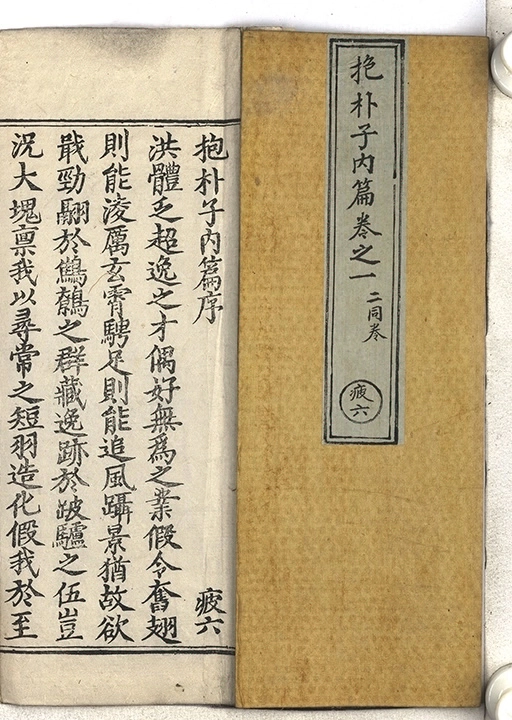 抱朴子內篇卷之一
二同卷
疲六
抱朴子內篇序
疲六
洪體乏超逸之才偶好無爲之業假令奮翅
則能淩厲玄霄騁足則能追風躡景猶故欲
戢勁翮於鷦鷯之群藏逸跡於跛驢之伍豈
況大塊禀我以尋常之短羽造化假我於至